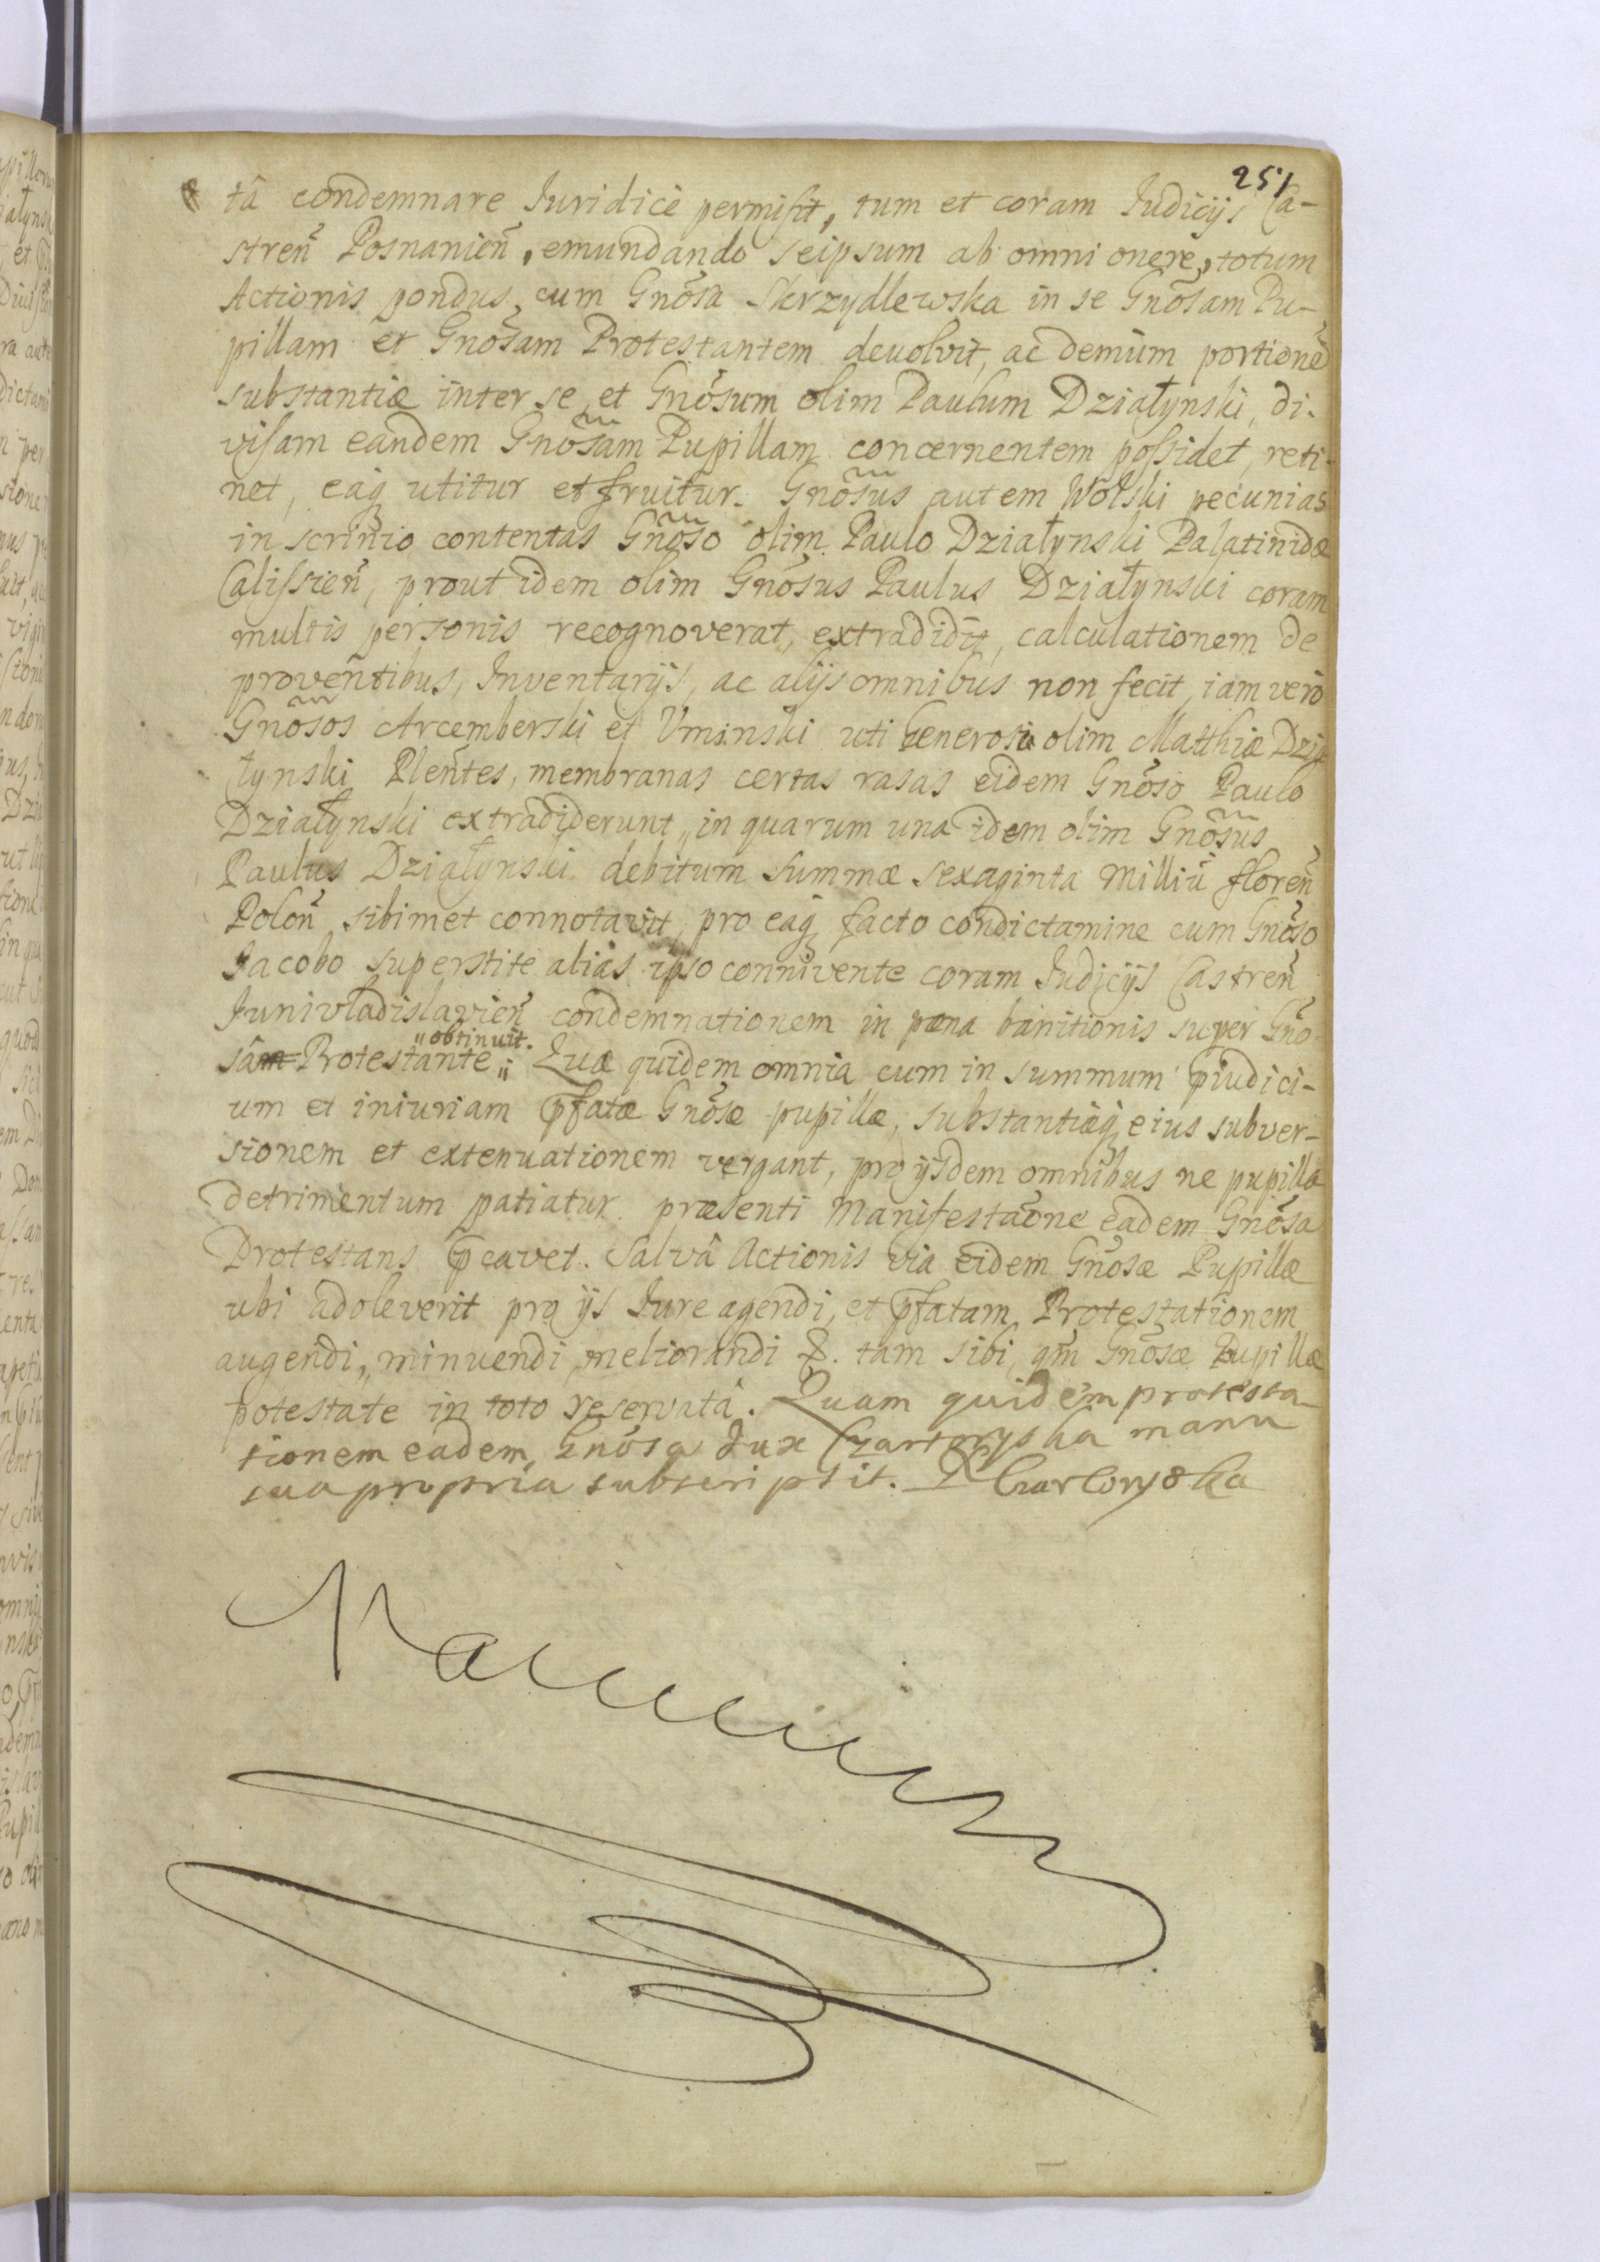 251
tâ condemnare Iuridicè permisit, tum et coram Iudicijs Ca-
stren̄ Posnanien̄, emundando seipsum ab omni onere, totum
Actionis pondus cum Gnōsa Skrzydlewska in se Gnōsam Pu-
pillam et Gnōsam Protestantem devolvit, ac demùm portionē
substantiæ inter se et Gnōsum olim Paulum Działynski, di-
visam eandem Gnōsam Pupillam concernentem possidet, reti-
net, eaq utitur et fruitur. Gnōsus autem Wolski pecunias
in scrinio contentas Gnōso olim Paulo Działynski Palatinidæ
Calissien̄, prout idem olim Gnōsus Paulus Działynski coram
multis personis recognoverat, extradidit, calculationem de
proventibus, Inventarijs, ac alijs omnibus non fecit, iam verò
Gnōsos Arcemberski et Uminski uti Generosi olim Matthiæ Dzia
łynski Plen̄tes, membranas certas rasas eidem Gnōso Paulo
Działynski extradiderunt, in quarum una idem olim Gnōsus
Paulus Działynski debitum summæ sexaginta Milliū floren̄
Polon̄ sibimet connotavit, pro eaq facto condictamine cum Gnōso
Iacobo superstite aliàs ipso connivente coram Iudicijs Castren̄
Iunivladislavien̄ condemnationem in pæna banitionis super Gnō
"obtinuit.
sâm Protestante" Quæ quidem omnia cum in summum p̄iudici-
um et iniuriam p̄fatæ Gnōsæ pupillæ, substantiæq eius subver-
sionem et extenuationem vergant, pro ijsdem omnibus ne pupilla
detrimentum patiatur præsenti Manifestaōne eadem Gnōsa
Protestans p̄cavet. Salvâ Actionis via eidem Gnōsæ Pupillæ
ubi adoleverit pro ijs Iure agendi, et p̄fatam Protestationem
augendi, minuendi, meliorandi &. tam sibi, qm̄ Gnōsæ Pupillæ
potestate in toto reservatâ. Quam quidem protesta-
tionem eadem Gnōsa Dux Czartoryska manu
sua propria subscripsit. Czartoryska